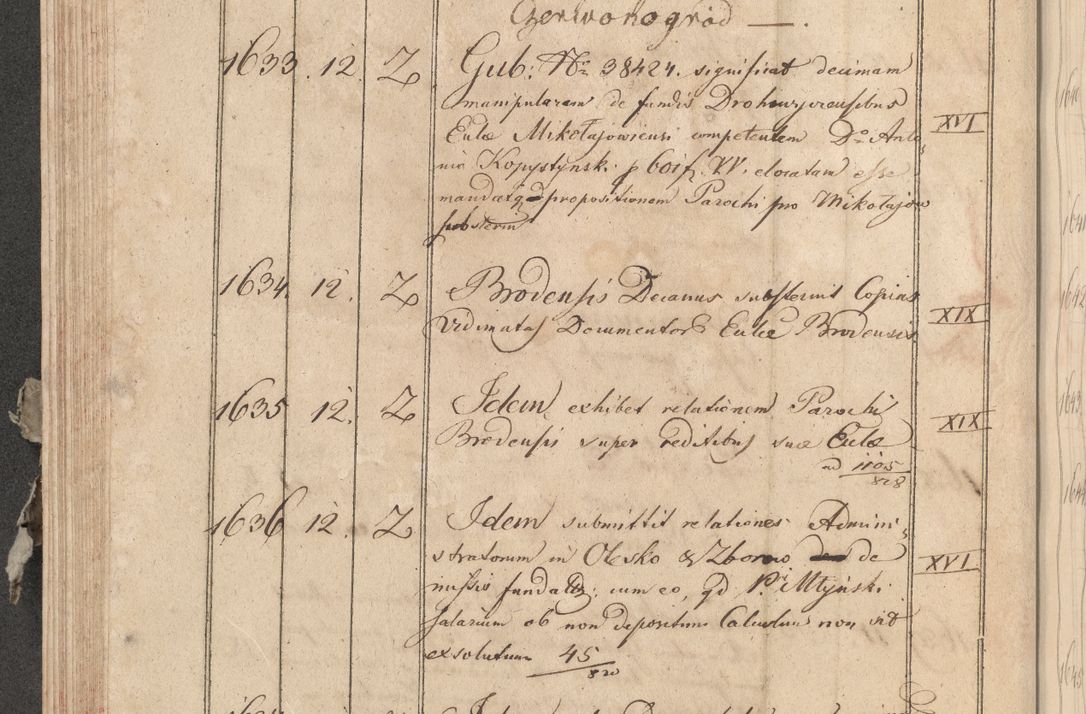 Czerwonogród —.
1633. 12. Z Gub: Nro 38424. significat decimam
manipularem de fundis Drohowyzensibus
XVI
Eulæ Mikołajowiensi competentem Do Anto
nio Kopystynski p 601 f. XV. elocatam esse
mandatq propositionem Parochi pro Mikołajow
substerni
1634. 12. Z Brodensis Decanus substernit Copias
XIX
Vidimatas Documentor Eulæ Brodensis
1635 12. Z Idem exhibet relationem Parochi
XIX
Brodensis super reditibus suæ Eulæ
ad 1105/828
1636 12. Z Idem submittit relationes Admini
stratorum in Olesko & Zborow de
XVI
missis fundat: cum eo, qd P. Młyński
salarium ob non depositum Calculum non sit
exsolutum 45/820
Idem